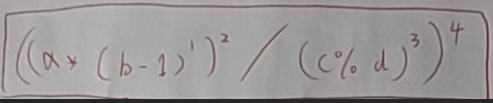 ((a * (b - 1)¹)² / (c % d)³)⁴